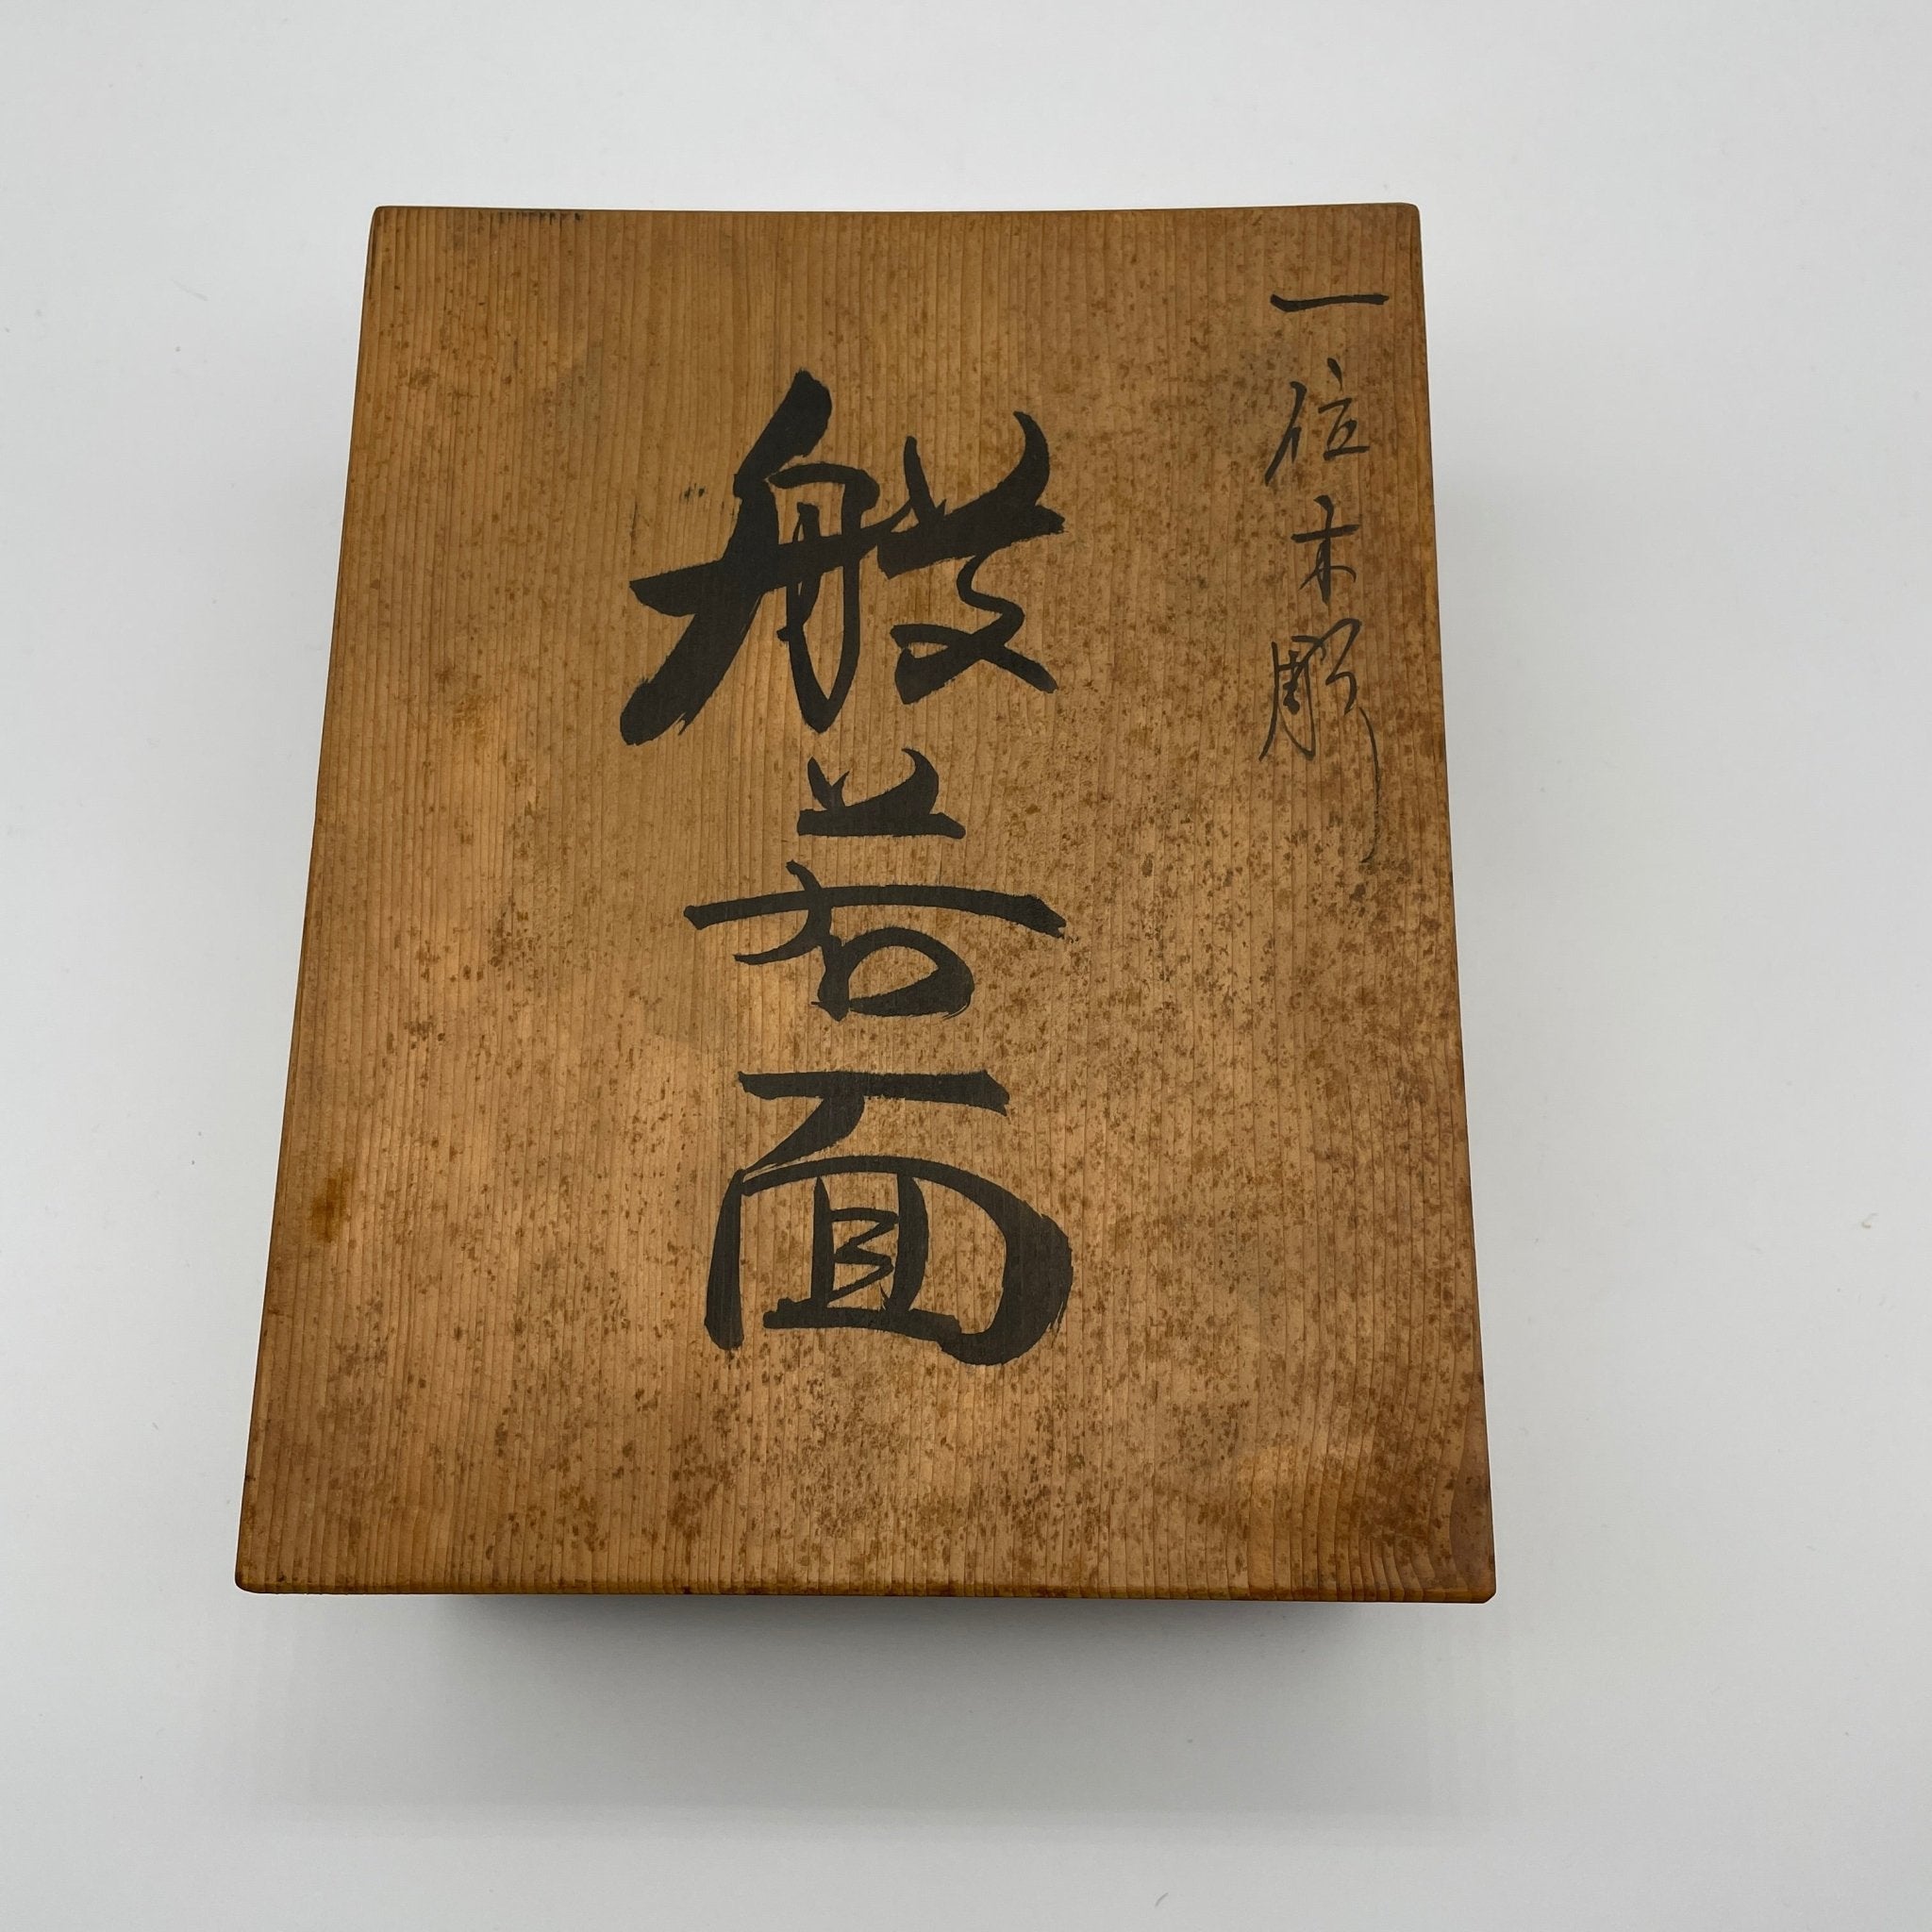 一位木彫
般若面